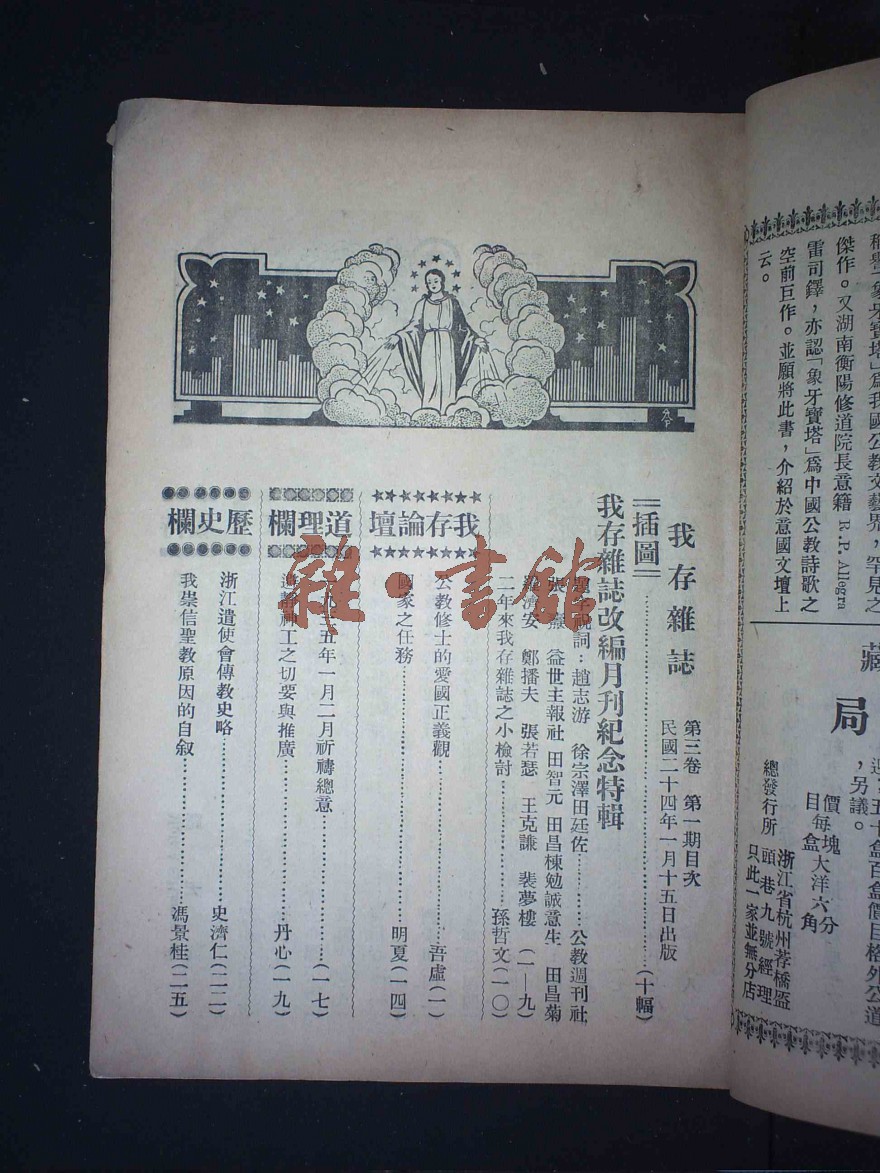 我存雜誌
第三卷 第一期目次
民國二十四年一月十五日出版
插圖……(十幅)
我存雜誌改編月刊紀念特輯
題字祝詞:趙志游 徐宗澤 田廷佐……公教週刊社
益世主報社 田智元 田昌棟 勉誠意生 田昌菊
鄭播夫 張若瑟 王克謙 裴夢樓 (一—九)
二年來我存雜誌之小檢討……孫哲文(一〇)
我存論壇
公教修士的愛國正義觀……吾虛(一)
國家之任務……明夏(一四)
道理欄
一九三五年一月二月祈禱總意……(一七)
避靜神工之切要與推廣……丹心(一九)
歷史欄
浙江遣使會傳教史略……史濟仁(二二)
我崇信聖教原因的自叙……馮景桂(二五)
雜·書館
稱譽「象牙寶塔」爲我國公教文藝界,罕見之
傑作。又湖南衡陽修道院長意籍 R.P. Allegra
雷司鐸,亦認「象牙寶塔」爲中國公教詩歌之
空前巨作。並願將此書,介紹於意國文壇上
云。
藏
局
五十盒百盒價目格外公道
,另議。
價每塊大洋六分
目每盒 六角
總發行所
浙江省杭州荐橋盔
頭巷九號經理
只此一家並無分店